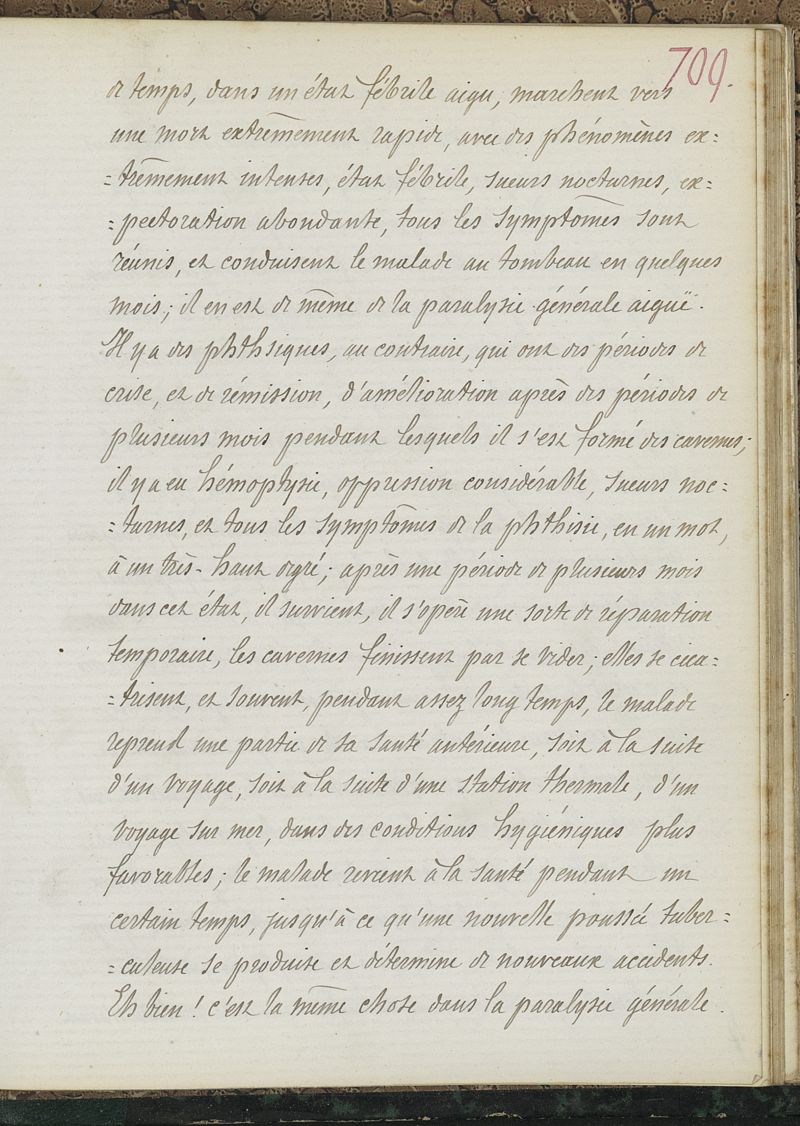 709.
de temps, dans un état fébrile aigu, marchent vers
une mort extrêmement rapide, avec des phénomènes ex=
=trêmement intenses, état fébrile, sueurs nocturnes, ex=
=pectoration abondante, tous les symptômes sont
réunis, et conduisent le malade au tombeau en quelques
mois; il en est de même de la paralysie générale aiguë.
Il y a des phthsiques, au contraire, qui ont des périodes de
crise, et de rémission, d'amélioration après des périodes de
plusieurs mois pendant lesquels il s'est formé des cavernes;
il y a eu hémoptysie, oppression considérable, sueurs noc=
=turnes, et tous les symptômes de la phthisie, en un mot,
à un très-haut degré; après une période de plusieurs mois
dans cet état, il survient, il s'opère une sorte de réparation
temporaire, les cavernes finissent par se vider; elles se cica=
=trisent, et souvent, pendant assez long temps, le malade
reprend une partie de sa santé antérieure, soit à la suite
d'un voyage, soit à la suite d'une station thermale, d'un
voyage sur mer, dans des conditions hygiéniques plus
favorables; le malade revient à la santé pendant un
certain temps, jusqu'à ce qu'une nouvelle poussée tuber=
=culeuse se produise et détermine de nouveaux accidents.
Eh bien! c'est la même chose dans la paralysie générale.